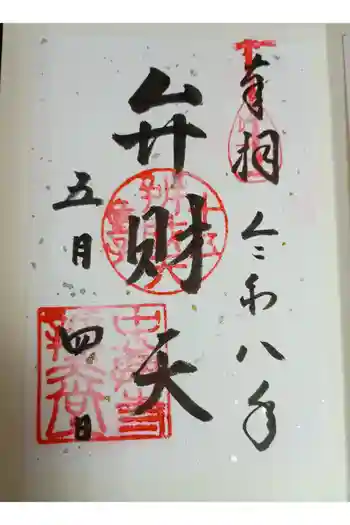 奉拝
令和八年
弁財天
五月
四日